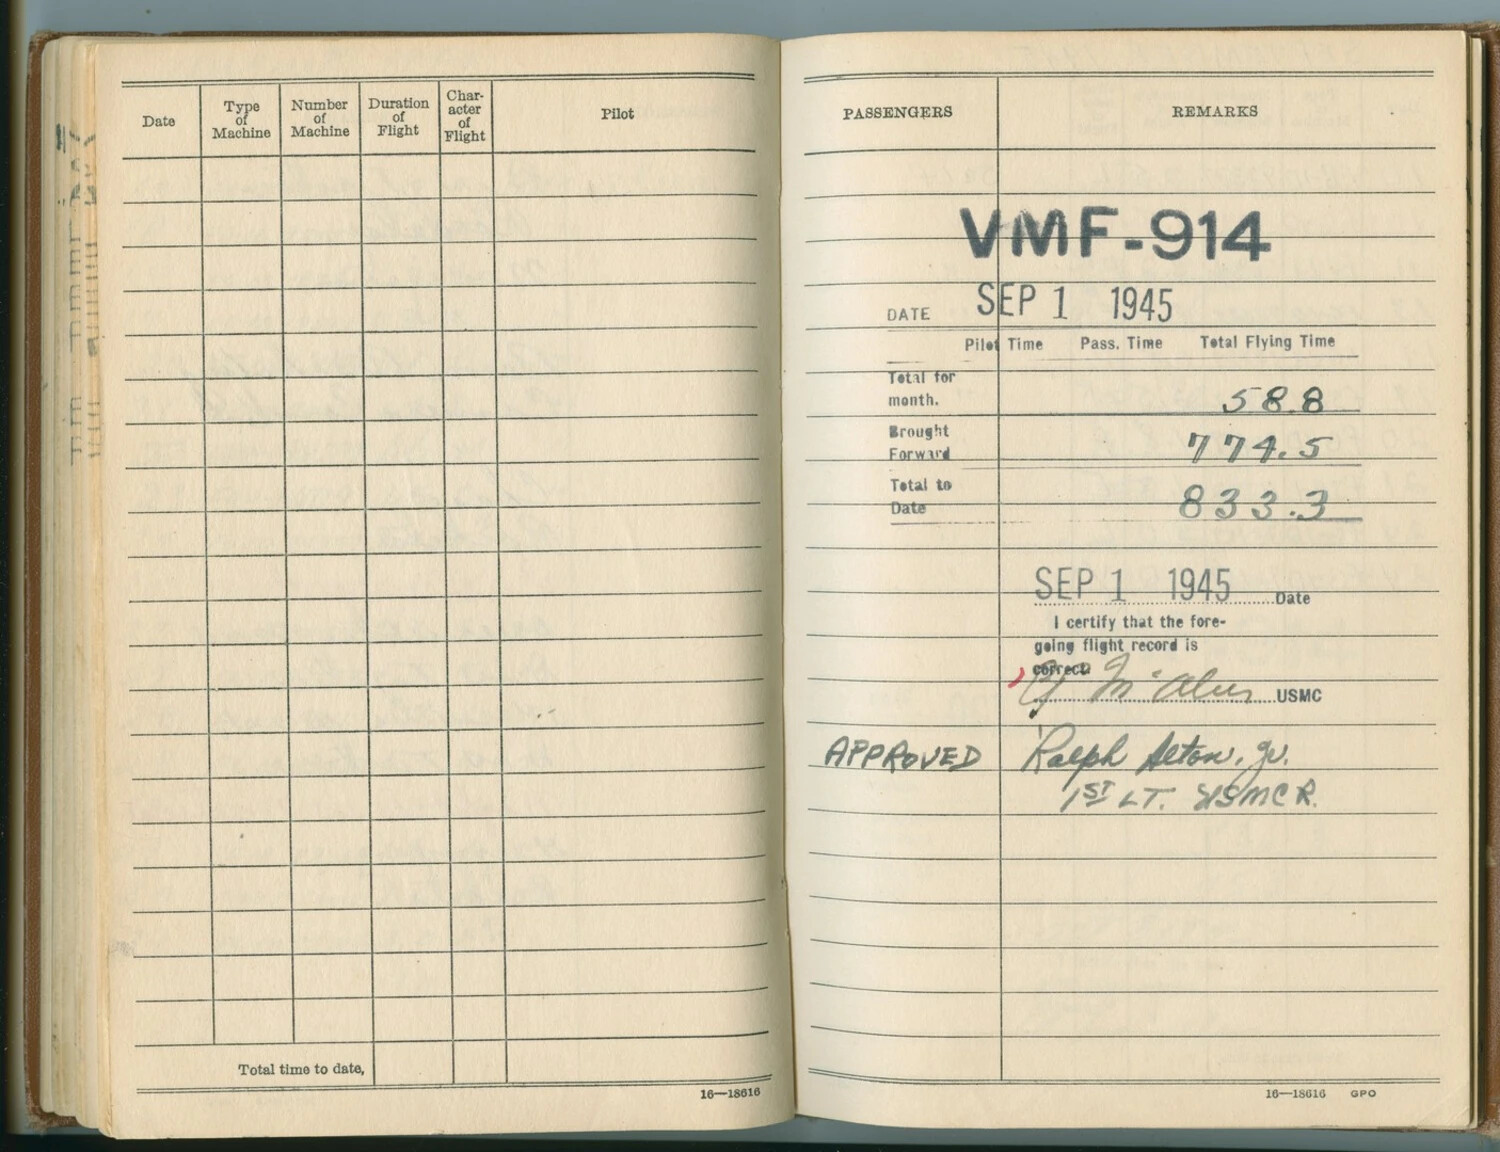 Date
Type of Machine
Number of Machine
Duration of Flight
Char-acter of Flight
Pilot
Total time to date,
16—18616
PASSENGERS
REMARKS
VMF-914
DATE SEP 1 1945
Pilot Time Pass. Time Total Flying Time
Total for
month. 58.8
Brought
Forward 774.5
Total to
Date 833.3
SEP 1 1945 Date
I certify that the fore-
going flight record is
correct.
USMC
APPROVED Ralph Alton, Jr.
1ST LT. USMCR.
16—18616 GPO